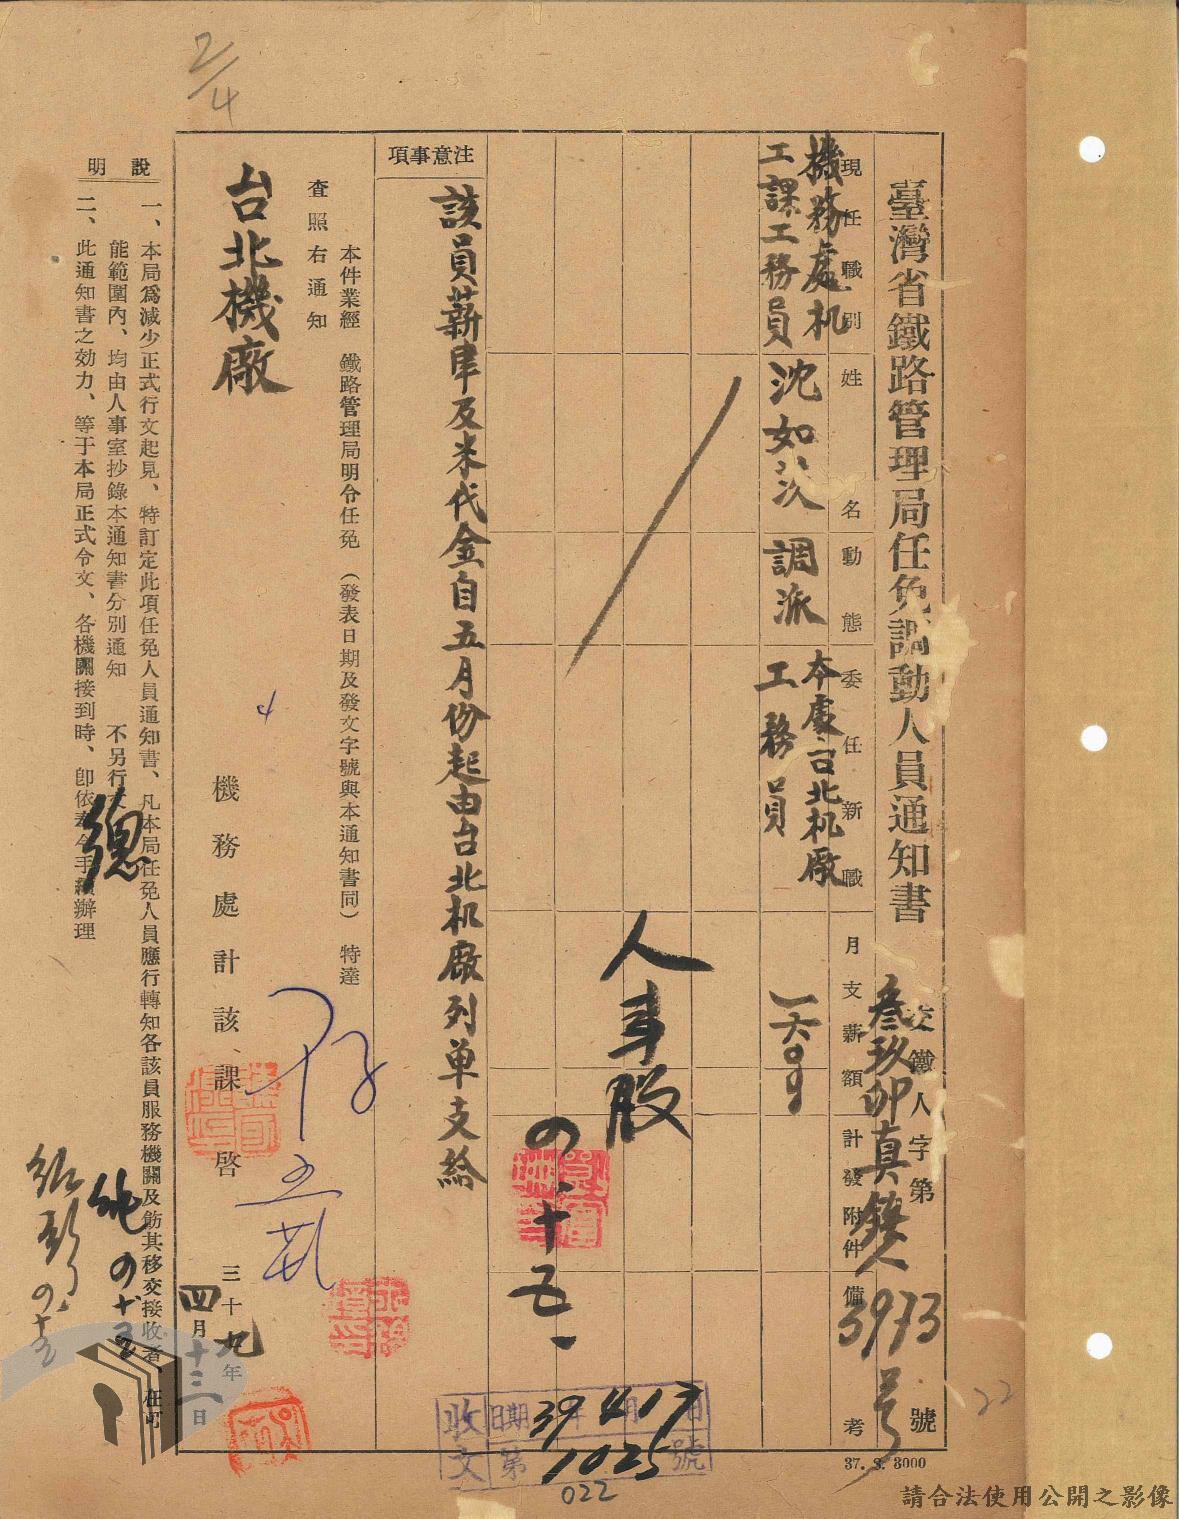 2/4
臺灣省鐵路管理局任免調動人員通知書
交鐵人字第　號
叁玖卯真鐵人3973号
現任職別
姓名
動態
委任新職
月支薪額
計發附件
備考
機務處机
工課工務員
沈如茨
調派
本處台北机廠
工務員
一六〇
人事股
四.十五
注意事項
該員薪津及米代金自五月份起由台北机廠列单支給
本件業經　鐵路管理局明令任免　（發表日期及發文字號與本通知書同）　特達
查照右通知
台北機廠
4
機務處計該課啓
三十九年四月十三日
說明
一、本局爲減少正式行文起見、特訂定此項任免人員通知書、凡本局任免人員應行轉知各該員服務機關及飭其移交接收者、在可
能範圍內、均由人事室抄錄本通知書分別通知　不另行文
二、此通知書之効力、等于本局正式令文、各機關接到時、卽依奉令手續辦理
總
純
收文
日期39年4月17日
第1025號
022
22
37. 8. 3000
請合法使用公開之影像